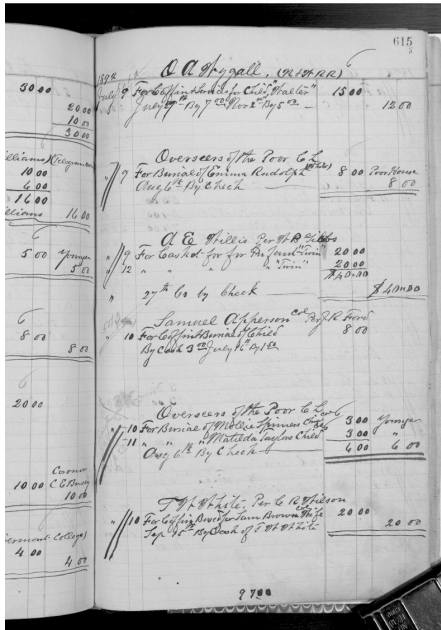 30 00
20 00
10 00
30 00
10 00
6 00
16 00
16 00
5 00 Younger
5 00
8 00
8 00
20 00
Coroner
10 00
10 00
4 00
4 00
615
1894
O A Nygall, (N & W RR)
July 9 For Coffin & Services for Child "Walter" 15 00
July 9th By 7 00 Nov 2" By 5 00 12 00
Overseers of the Poor C L
" 9 For Burial of Emma Rudolph (White) 8 00 Poor House
Aug 6th By Check 8 00
A E Willis Per W A Gibbs
" 9 For Casket for Infant "Twin" 20 00
" 12 " " " " "Twin" 20 00
$40.00
" 27th Co by Check $40.00
Samuel Apperson Col Per J R Ford
" 10 For Coffin & Burial of Child 8 00
By Cash 3 00 July 16th By 1 50
Overseers of the Poor C L
" 10 For Burial of Mollie Child 3 00 Younger
" 11 " " Matilda Taylors Child 3 00 "
Aug 6th By Check 6 00 6 00
T W White, Per C R Wilson
" 10 For Coffin Brown Wife 20 00
Sep By Cash of T W White 20 00
9700